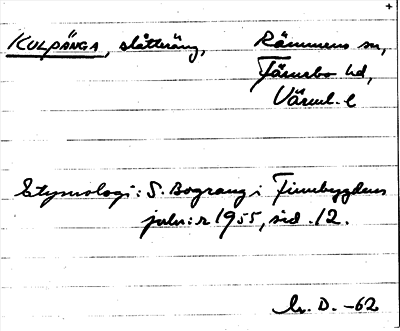 KULPÄNGA, slåtteräng, Rämmens sn,
Färnebo hd,
Värml. l
Etymologi: S. Bograng i Finnbygden
julnr 1955, sid. 12.
D. -62